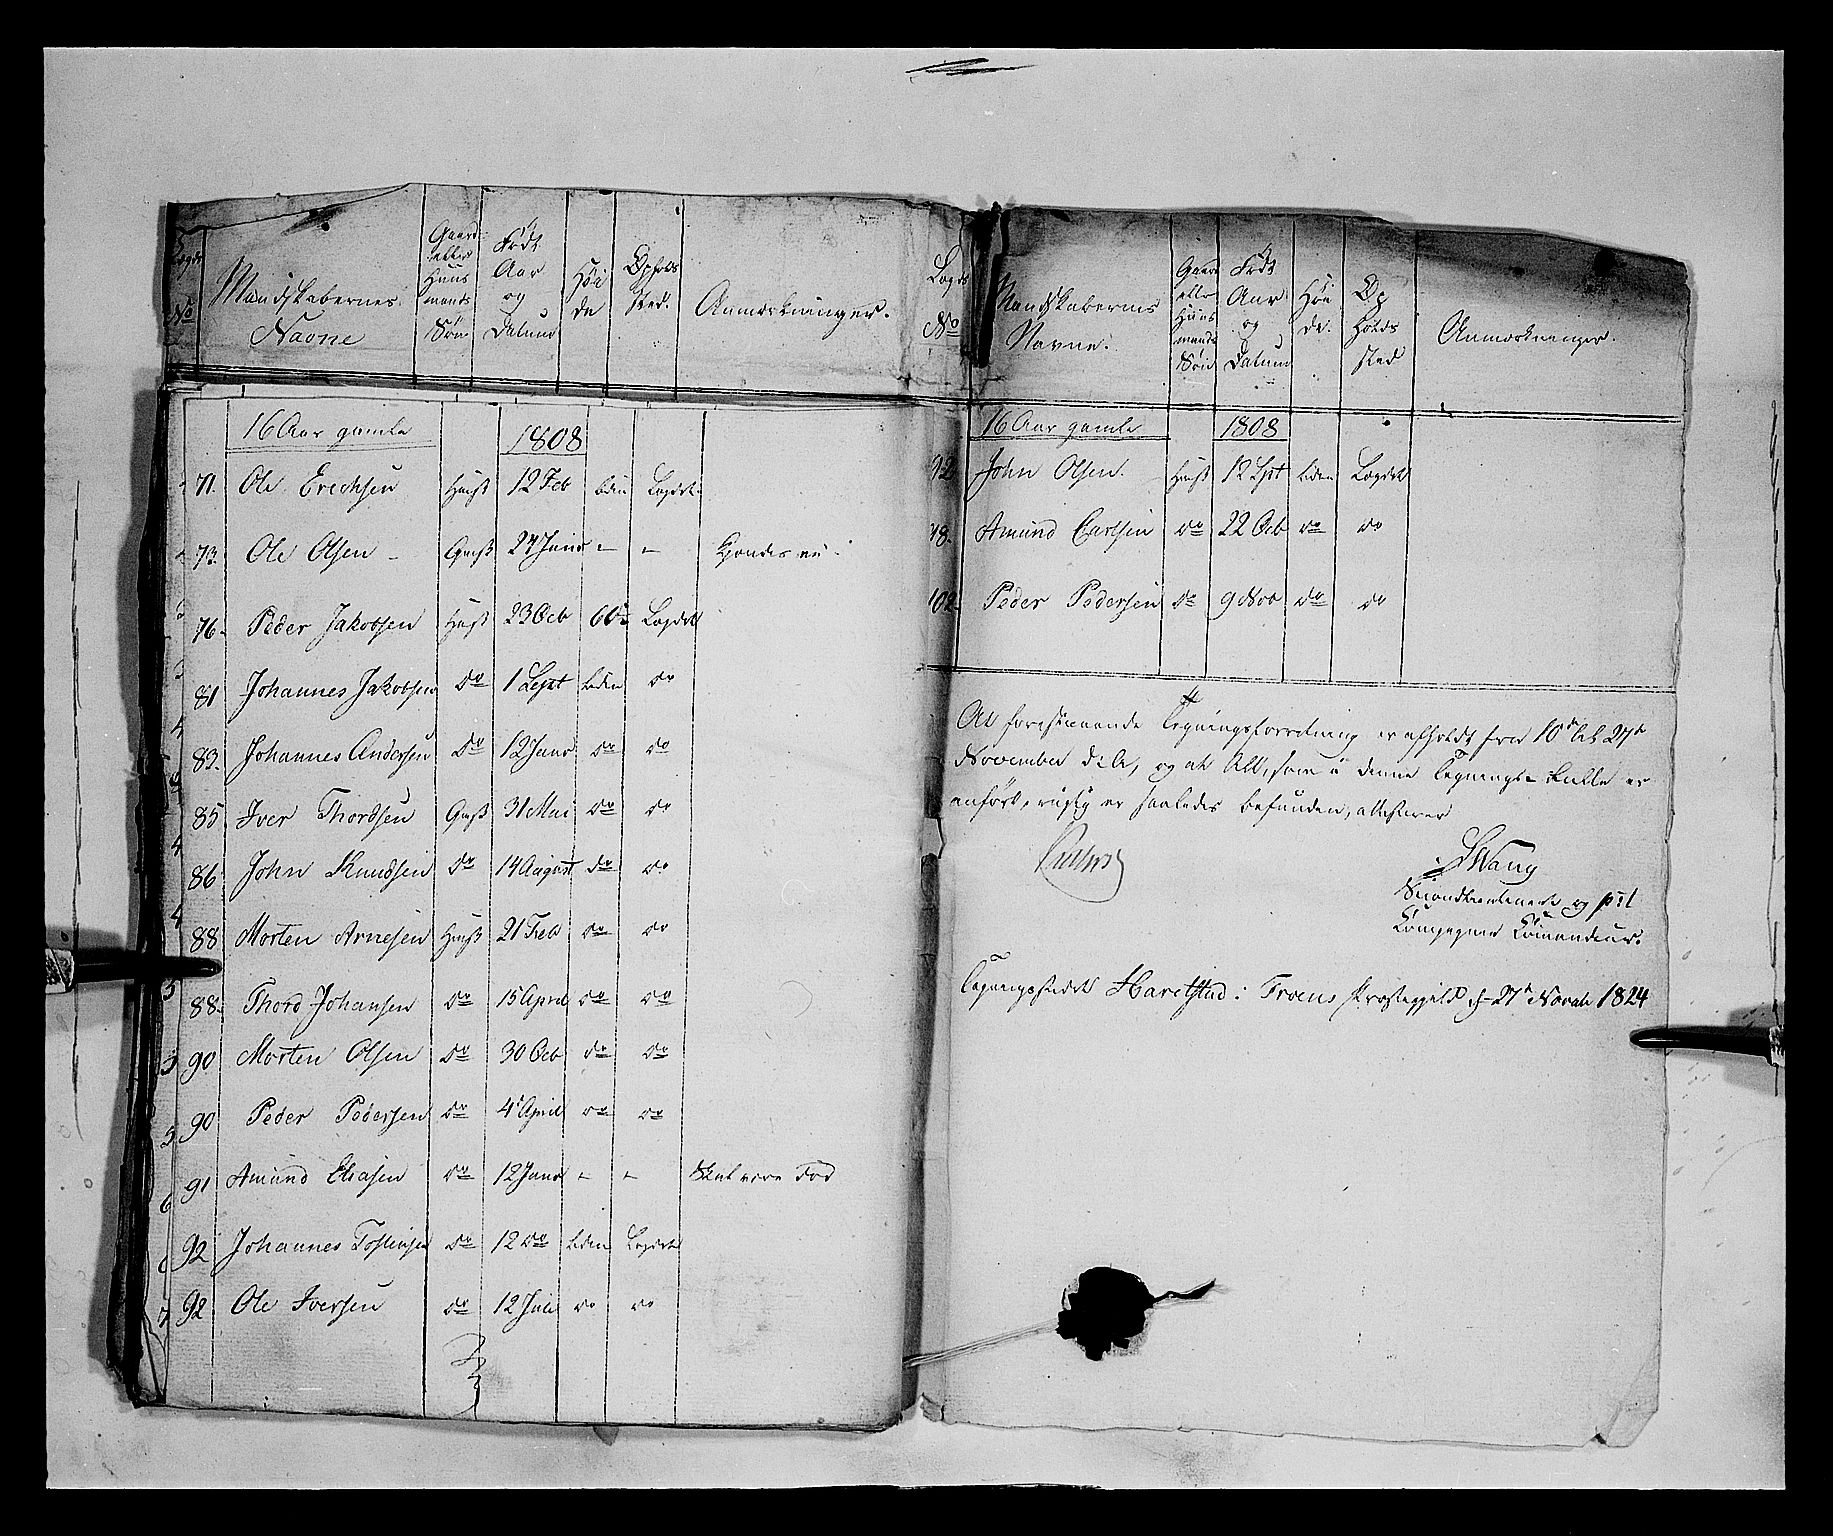 Lægds No
Mandskabernes Navne
Gaard eller Huusmands Søn
Født Aar og Datum
Høide
Opholdssted.
Anmærkninger.
16 Aar gamle 1808
71. Ole Erichsen Huusß 12 Feb liden Lægdet
73. Ole Olsen - Grdß 24 Junii - - Kjendes ei
76. Peder Jakobsen Huusß 23 Octb 60 Lægdet
81 Johannes Jakobsen do 1 Sept liden do
83. Johannes Andersen do 12 Janr do do
85 Iver Thordsen Grdß 31 Mai do do
86 John Knudsen do 14 August do do
88 Morten Arnesen Huusß 21 Feb do do
88. Thord Johansen do 15 April do do
90 Morten Olsen do 30 Octb do do
90 Peder Pedersen do 4 April do do
91 Amund Eliasen do 12 Janr - - Skal være Død
92 Johannes Tostensen do 12 do liden Lægdet
92 Ole Iversen do 12 Juli do do
Lægds No
Mandskabernes Navne.
Gaard eller Huusmands Søn
Født Aar og Datum
Høide.
Opholdssted
Anmærkninger.
16 Aar gamle 1808
92 John Olsen. Huusß 12 Spt liden Lægdet
98. Amund Carlsen do 22 Octb do do
102. Peder Pedersen do 9 Nov do do
At forestaaende Tegningsforretning er afholdt fra 10de til 27de
November d: A, og at Alt, som i denne Tegnings-Rulle er
anført, rigtig er saaledes befunden, attesterer
SWang
Secondlieutenant og p: t
Compagnie Comandeur.
Tegningsstedet Haretstad i Froens Præstegjeld d 27de Novbr 1824